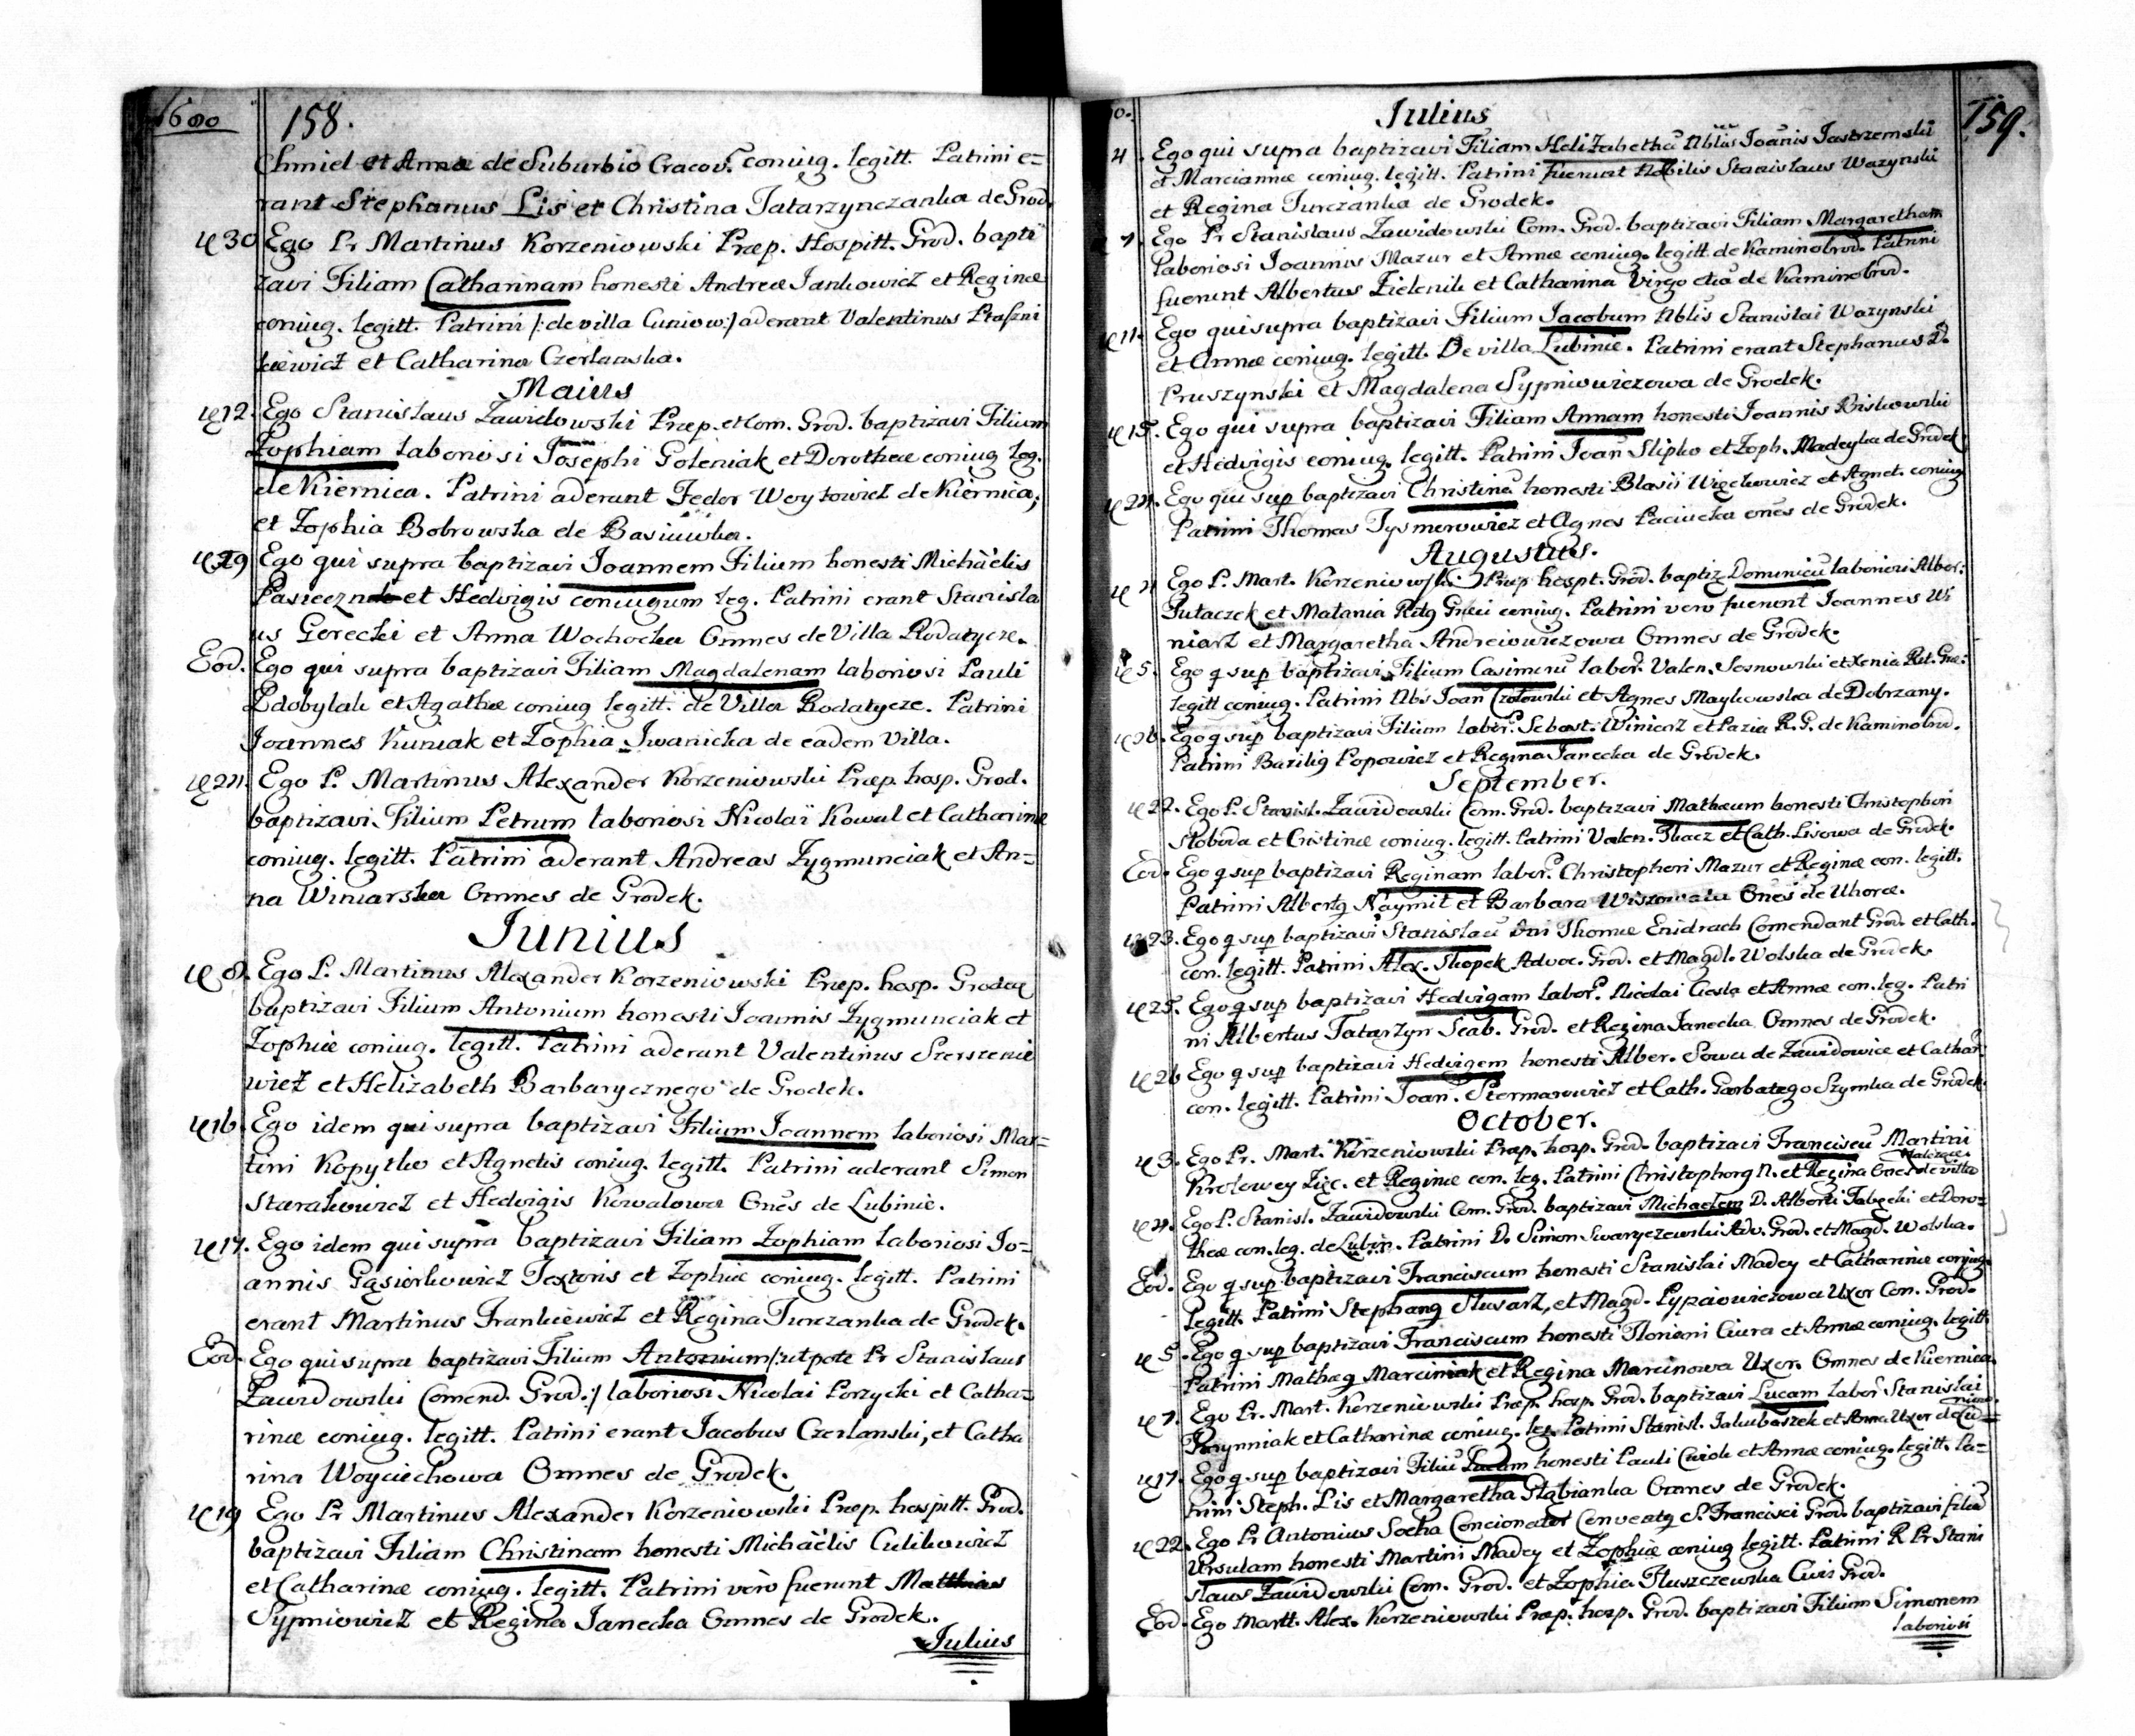 1680
158.
Chmiel et Annæ de Suburbio Cracov. coniug. legitt. Patrini e=
rant Stephanus Lis et Christina Tatarzynczanka de Grod.
30 Ego Pr Martinus Korzeniowski Præp. Hospitt. Grod. bapti
zavi Filiam Catharinam honesti Andreæ Jankowicz et Reginæ
coniug. legitt. Patrini /: de villa Cuniow :/ aderant Valentinus
kiewicz et Catharina Czerlanska.
Maius
12. Ego Stanislaus Zawidowski Præp. et Com. Grod. baptizavi Filium
Zophiam laboriosi Josephi Goleniak et Dorotheæ coniug leg.
de Kiernica. Patrini aderant Fedor Woytowicz de Kiernica,
et Zophia Bobrowska de Basiuwka.
19 Ego qui supra baptizavi Joannem Filium honesti Michaëlis
et Hedvigis coniugum leg. Patrini erant Stanisla
us Gorecki et Anna Wochocka Omnes de Villa Rodatycze.
Eod. Ego qui supra baptizavi Filiam Magdalenam laboriosi Pauli
Zdobylak et Agathæ coniug legitt. de Villa Rodatycze. Patrini
Joannes Kuniak et Zophia Iwanicka de eadem Villa.
24. Ego P. Martinus Alexander Korzeniowski Præp. hosp. Grod.
baptizavi Filium Petrum laboriosi Nicolai Kowal et Catharinæ
coniug. legitt. Patrini aderant Andreas Zygmunciak et An=
na Winiarska Omnes de Grodek.
Iunius
8. Ego P. Martinus Alexander Korzeniowski Præp. hosp. Grodec
baptizavi Filium Antonium honesti Joannis Zygmunciak et
Zophiæ coniug. legitt. Patrini aderant Valentinus Szerszenie
wicz et Helizabeth Barbarycznego de Grodek.
16. Ego idem qui supra baptizavi Filium Joannem laboriosi Mar=
tini Kopytko et Agnetis coniug. legitt. Patrini aderant Simon
Starakowicz et Hedvigis Kowalowa Ones de Lubinie.
17. Ego idem qui supra baptizavi Filiam Zophiam laboriosi Jo=
annis Gąsiorkowicz Textoris et Zophiæ coniug. legitt. Patrini
erant Martinus Frankiewicz et Regina Turczanka de Grodek.
Eod. Ego qui supra baptizavi Filium Antonium /: utpote Pr Stanislaus
Zawidowski Comend. Grod :/ laboriosi Nicolai Porzycki et Catha=
rinæ coniug. legitt. Patrini erant Jacobus Czerlanski, et Catha
rina Woyciechowa Omnes de Grodek.
19 Ego Pr Martinus Alexander Korzeniowski Præp. hospitt. Grod.
baptizavi Filiam Christinam honesti Michaëlis Culikowicz
et Catharinæ coniug. legitt. Patrini vero fuerunt Matthias
Sypniowicz et Regina Janecka Omnes de Grodek.
Julius
Iulius
159.
4. Ego qui supra baptizavi Filiam Helizabetha Nblis Joanis Jastrzemski
et Mariannæ coniug. legitt. Patrini fuerunt Nobilis Stanislaus Wazynski
et Regina Turczanka de Grodek.
7. Ego Pr Stanislaus Zawidowski Com. Grod. baptizavi Filiam Margaretham
laboriosi Joannis Mazur et Annæ coniug. legitt de Kaminobrod. Patrini
fuerunt Albertus Zielenik et Catharina Virgo de Kaminobrod.
11. Ego qui supra baptizavi Filium Jacobum Nblis Stanislai Wazynski
et Annæ coniug. legitt. De villa Lubinie. Patrini erant Stephanus D.
Pruszynski et Magdalena Sypniowiczowa de Grodek.
15. Ego qui supra baptizavi Filiam Annam honesti Joannis Biskowski
et Hedvigis coniug. legitt. Patrini Joan Slipko et Zoph. Madeyka de Grodek
24. Ego qui sup baptizavi Christina honesti Blasii Więckowicz et Agnet. coniug
Patrini Thomas Tysmerowicz et Agnes Paciucka ones de Grodek.
Augustus.
4 Ego P. Mart. Korzeniowski Præp hospt. Grod. baptiz Dominicu laboriosi Alber:
Putaczek et Matania Ritg Græci coniug. Patrini vero fuerunt Joannes Wi
niarz et Margaretha Andreiowiczowa Omnes de Grodek.
5. Ego q sup baptizavi Filium Casimeru labor. Valen. Sosnowski et Xenia Rit. Græ:
legitt coniug. Patrini Nbs Joan Czolowski et Agnes Maykowska de Dobrzany.
26. Ego q sup baptizavi Filium labor. Sebast. Winiarz et Pazia R. G. de Kaminobrod.
Patrini Bazilig Popowicz et Regina Janecka de Grodek.
September.
22. Ego P. Stanisl. Zawidowski Com. Grod. baptizavi Mathæum honesti Christophori
Sloboda et Cristinæ coniug. legitt. Patrini Valen. Tkacz et Cath. Lisowa de Grodek.
Eod. Ego q sup baptizavi Reginam labor. Christophori Mazur et Reginæ con. legitt.
Patrini Albertg Naymit et Barbara Ones de Uhorce.
23. Ego q sup baptizavi Stanislau Dni Thomæ Enidrach Comendant Grod. et Cath.
con. legitt. Patrini Alex. Skopek Advoc. Grod. et Magdl. Wolska de Grodek.
25. Ego q sup baptizavi Hedvigam labor. Nicolai Ciesla et Annæ con. leg. Patri
ni Albertus Tatarzyn Scab. Grod. et Regina Janecka Omnes de Grodek.
26 Ego q sup baptizavi Hedvigem honesti Alber. Sowa de Zawidowice et Cathar.
con. legitt. Patrini Joan. Szermanowicz et Cath. Garbatego Szymka de Grodek.
October.
3. Ego Pr. Mart. Korzeniowski Præp. hosp. Grod. baptizavi Franciscu Martini
Krolowey Zięc. et Reginæ con. leg. Patrini Christophorg N. et Regina Ones de villa
4. Ego P. Stanisl. Zawidowski Com. Grod. baptizavi Michaelem D. Alberti Jabęcki et Doro=
theæ con. leg. de Lubin. Patrini D. Simon Swaryczewski Adv. Grod. et Magd. Wolska.
Eod. Ego q sup baptizavi Franciscum honesti Stanislai Madey et Catharinæ coniug
Legitt. Patrini Stephang Slusarz, et Magd. Uxor Con. Grod.
5. Ego q sup baptizavi Franciscum honesti Floriani Ciura et Annæ coniug. legitt.
Patrini Matheg Marciniak et Regina Marcinowa Uxor. Omnes de Kiernica.
7. Ego Pr. Mart. Korzeniowski Præp. hosp. Grod. baptizavi Lucam labor Stanislai
et Catharinæ coniug. leg. Patrini Stanisl. Jakubaszek et Anna Uxor de Cu=
niow
17. Ego q sup baptizavi Filiu Lucam honesti Pauli et Annæ coniug. legitt. Pa=
trini Steph. Lis et Margaretha Omnes de Grodek.
22. Ego Pr Antonius Socha Concionator Conventg S. Francisci Grod. baptizavi filia
Ursulam honesti Martini Madey et Zophiæ coniug legitt. Patrini R Pr Stani
slaus Zawidowski Com. Grod. et Zophia Tluszczewska Civis Grod.
Eod. Ego Martt. Alex. Korzeniowski Præp. hosp. Grod. baptizavi Filium Simonem
laboriosi